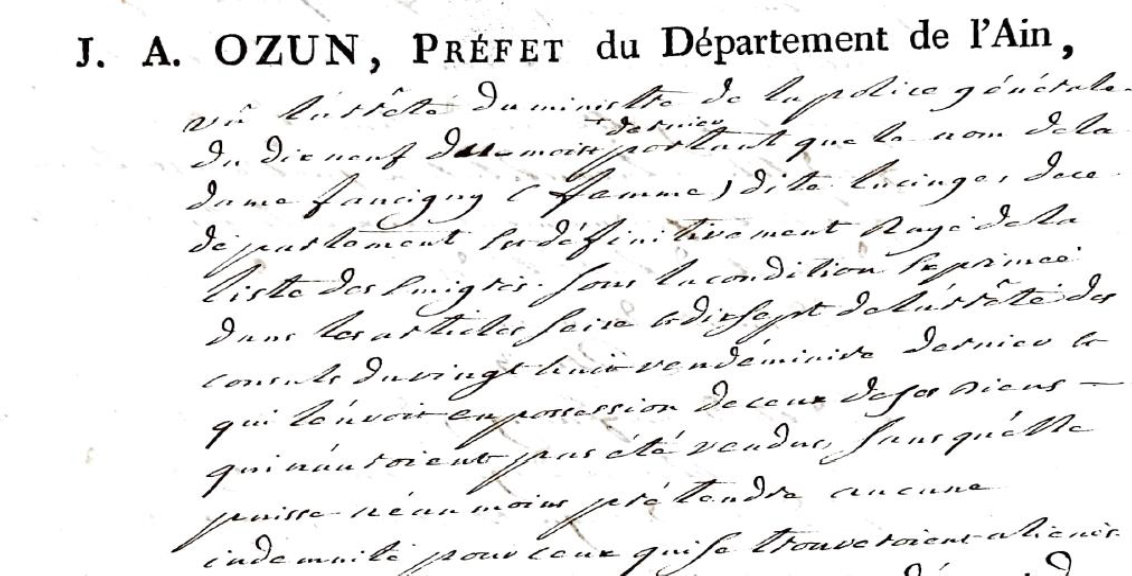 J. A. OZUN, PRÉFET du Département de l'Ain,
vû l'arrêté du ministre de la police générale
du dix neuf du mois dernier portant que le nom de la
dame faucigny (femme) dite lucinge, de ce
département est définitivement Rayé de la
liste des Emigrés. sous la condition Exprimée
dans les articles seise et dix sept de l'arrêté des
consuls du vingt huit vendémiaire dernier et
qui l'envoit en possession de ceux de ses Biens —
qui n'auroient pas été vendus, sans qu'elle
puisse néanmoins prétendre aucune
indemnité pour ceux qui se trouveroient alienés.